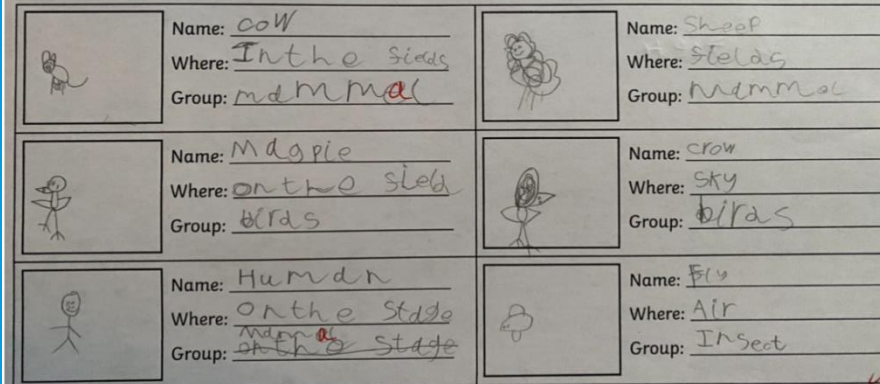 Name: cow
Where: In the fields
Group: mammal
Name: Sheep
Where: fields
Group: Mammal
Name: Magpie
Where: on the field
Group: birds
Name: crow
Where: Sky
Group: birds
Name: Human
Where: on the Stage
Mammal
Group: on the Stage
Name: Fly
Where: Air
Group: Insect